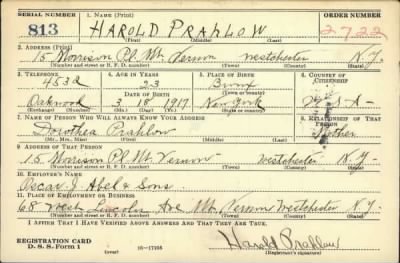 SERIAL NUMBER 1. NAME (Print) ORDER NUMBER
813 HAROLD PRAHLOW 2722
(First) (Middle) (Last)
2. ADDRESS (Print)
15 Morrison Pl. Mt. Vernon Westchester N.Y.
(Number and street or R. F. D. number) (Town) (County) (State)
3. TELEPHONE 4. AGE IN YEARS 5. PLACE OF BIRTH 6. COUNTRY OF CITIZENSHIP
4532 23 Bronx
DATE OF BIRTH (Town or county)
Oakwood 3 18 1917 New York U-S-A-
(Exchange) (Number) (Mo.) (Day) (Yr.) (State or country)
7. NAME OF PERSON WHO WILL ALWAYS KNOW YOUR ADDRESS 8. RELATIONSHIP OF THAT PERSON
Dorothea Prahlow Mother
(Mr., Mrs., Miss) (First) (Middle) (Last)
9. ADDRESS OF THAT PERSON
15 Morrison Pl. Mt. Vernon Westchester N.Y.
(Number and street or R. F. D. number) (Town) (County) (State)
10. EMPLOYER'S NAME
Oscar J. Abel & Sons
11. PLACE OF EMPLOYMENT OR BUSINESS
68 West Lincoln Ave Mt. Vernon Westchester N.Y.
(Number and street or R. F. D. number) (Town) (County) (State)
I AFFIRM THAT I HAVE VERIFIED ABOVE ANSWERS AND THAT THEY ARE TRUE.
REGISTRATION CARD
D. S. S. Form 1 (over) 16—17105 Harold Prahlow
(Registrant's signature)